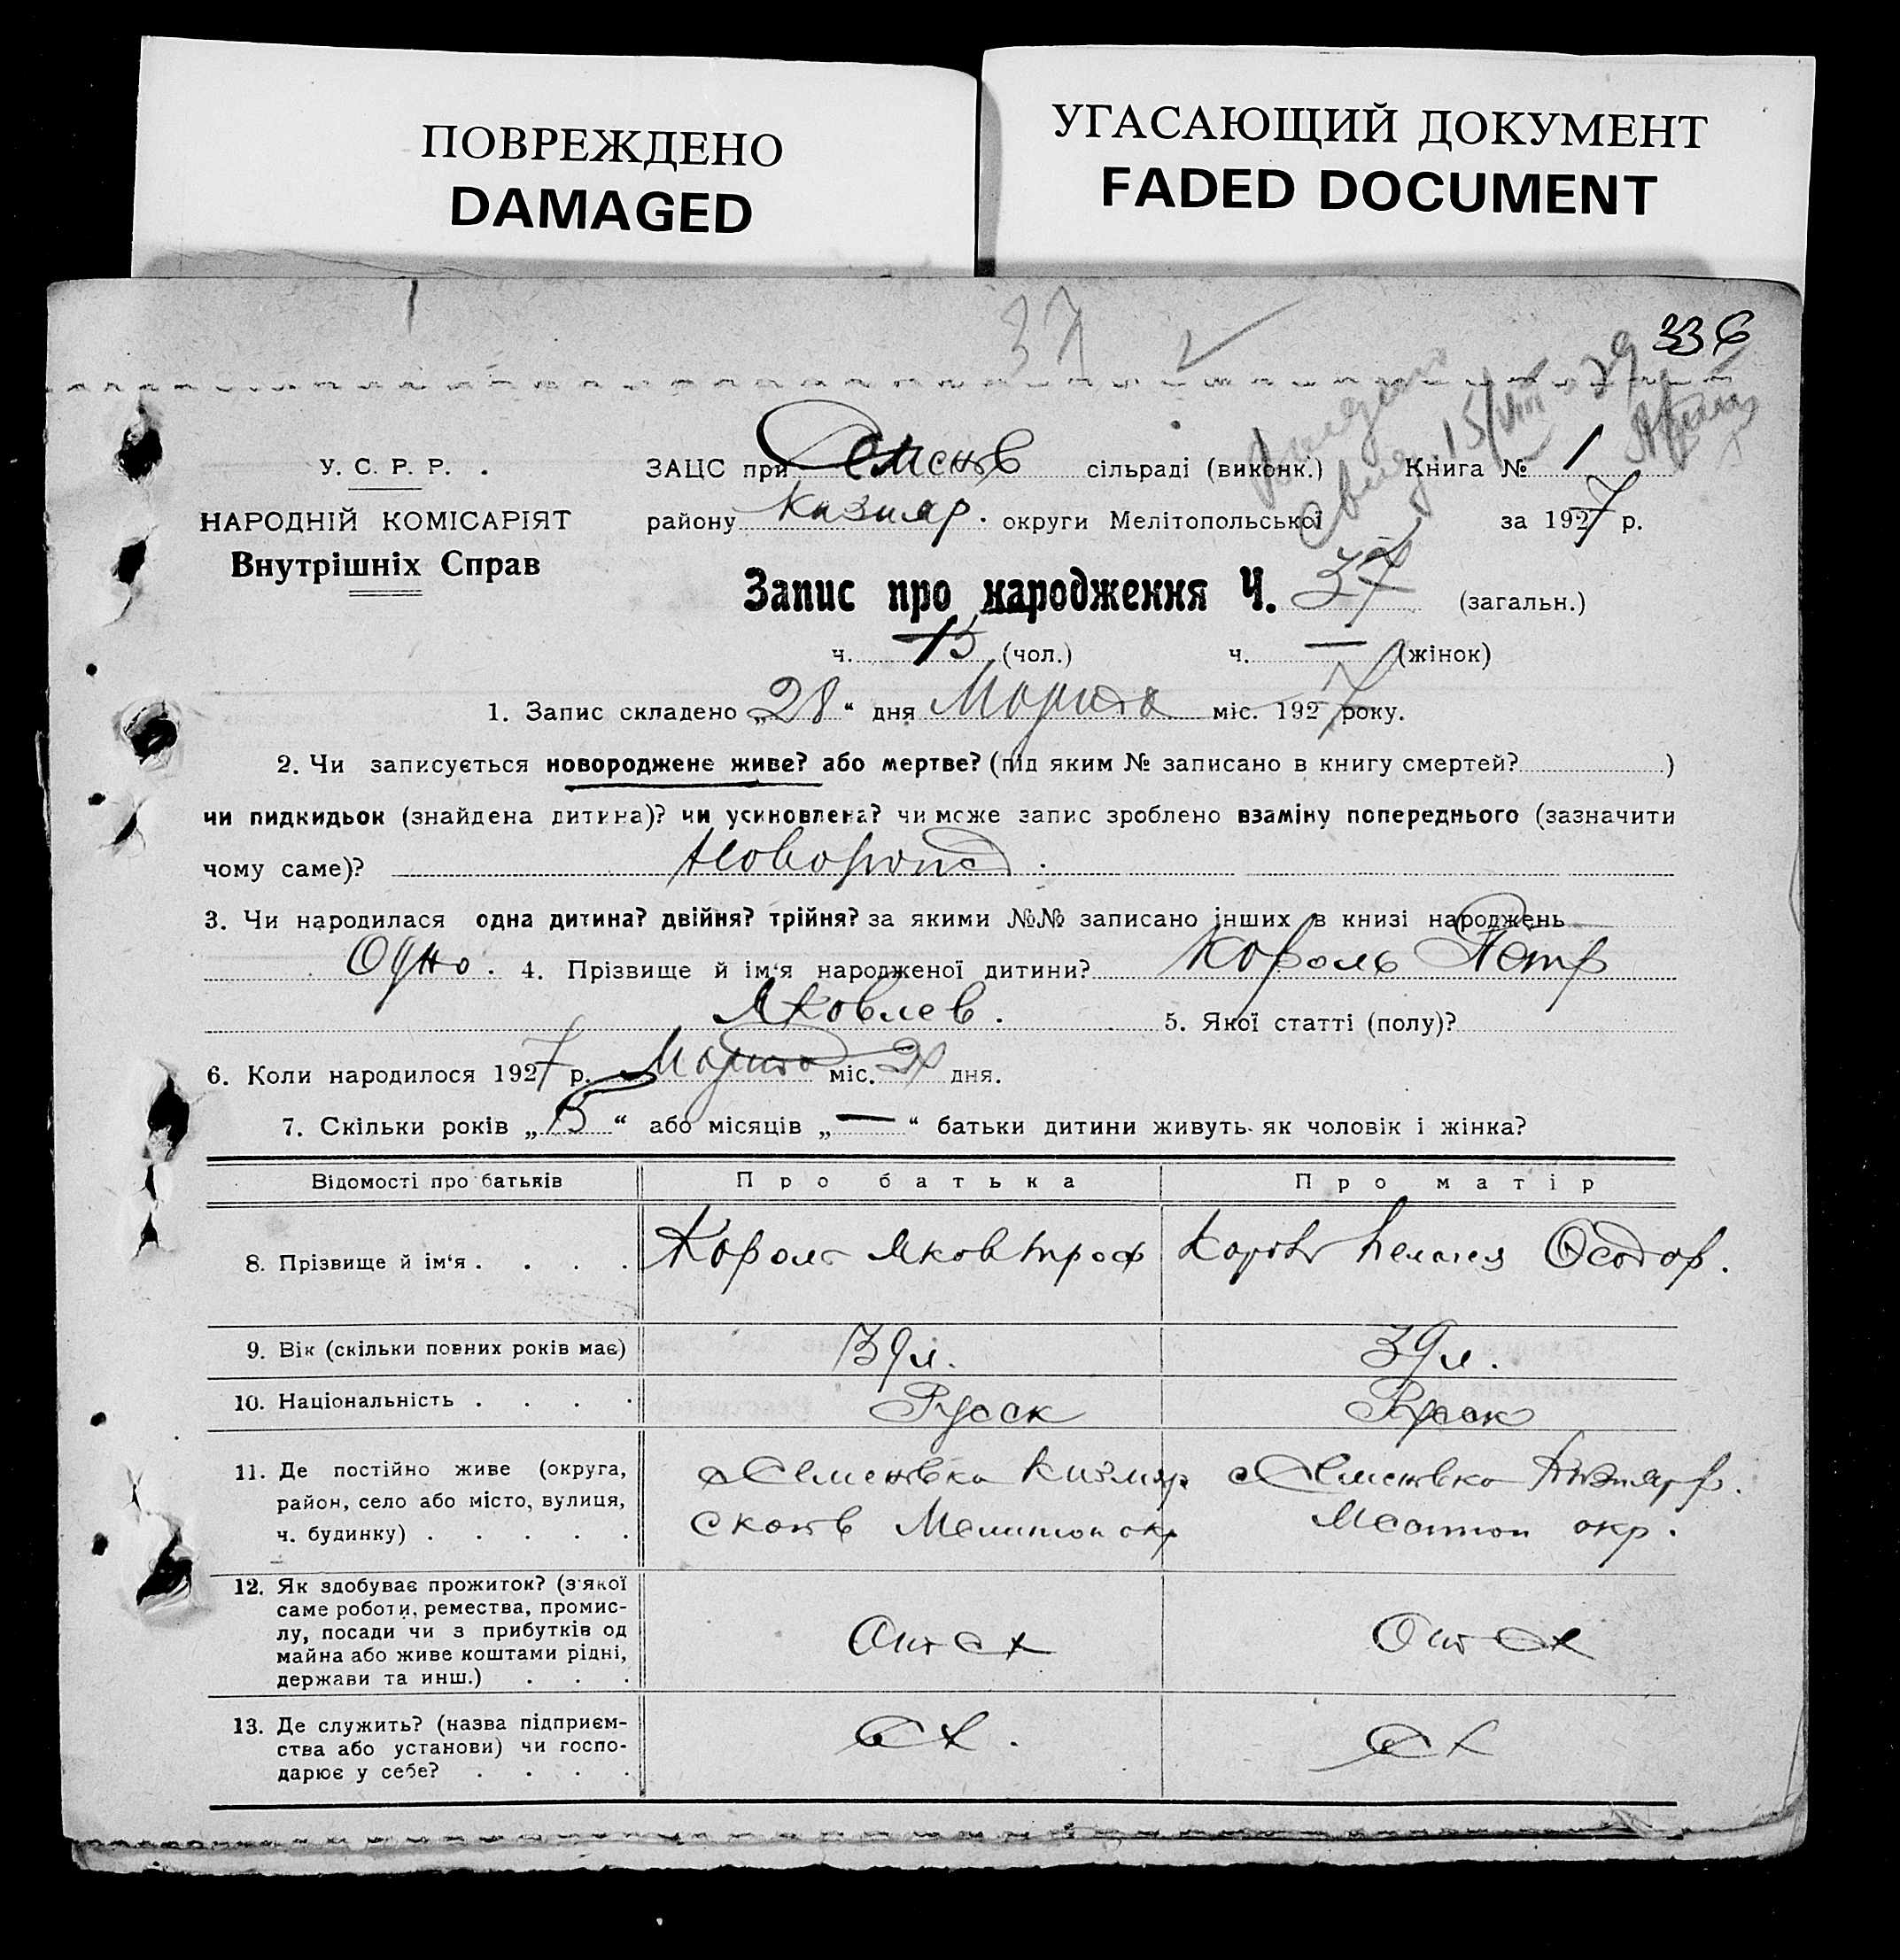 ПОВРЕЖДЕНО
DAMAGED
УГАСАЮЩИЙ ДОКУМЕНТ
FADED DOCUMENT
37
336
У. С. Р. Р.
НАРОДНІЙ КОМІСАРІЯТ
Внутрішніх Справ
ЗАЦС при Семенов сільраді (виконк.) Книга № 1
району Кизияр. округи Мелітопольської за 1927 р.
Запис про народження Ч. 37 (загальн.)
ч. 15 (чол.) ч. — (жінок)
1. Запис складено „28“ дня Марта міс. 1927 року.
2. Чи записується новороджене живе? або мертве? (під яким № записано в книгу смертей? )
чи пидкидьок (знайдена дитина)? чи усиновлена? чи може запис зроблено взаміну попереднього (зазначити
чому саме)?
3. Чи народилася одна дитина? двійня? трійня? за якими №№ записано інших в книзі народжень
Одно. 4. Прізвище й ім'я народженої дитини? Король Петр
Яковлев. 5. Якої статті (полу)?
6. Коли народилося 1927 р. Марта міс. дня.
7. Скільки років „ “ або місяців „—“ батьки дитини живуть як чоловік і жінка?
Відомості про батьків Про батька Про матір
8. Прізвище й ім'я . . . . Король Яков Троф Пелагея Феодор.
9. Вік (скільки повних років має) 39 л. 39 л.
10. Національність . . . . Русск Русск
11. Де постійно живе (округа,
район, село або місто, вулиця,
ч. будинку) . . . . .
с Семеновка Кизияр
Мелитоп окр
с Семеновка Кизияр р.
Мелитоп окр.
12. Як здобуває прожиток? (з'якої
саме роботи, ремества, промис-
лу, посади чи з прибутків од
майна або живе коштами рідні,
держави та инш.) . . .
От с х
От с х
13. Де служить? (назва підприєм-
ства або установи) чи госпо-
дарює у себе? . . . .
с х.
с х